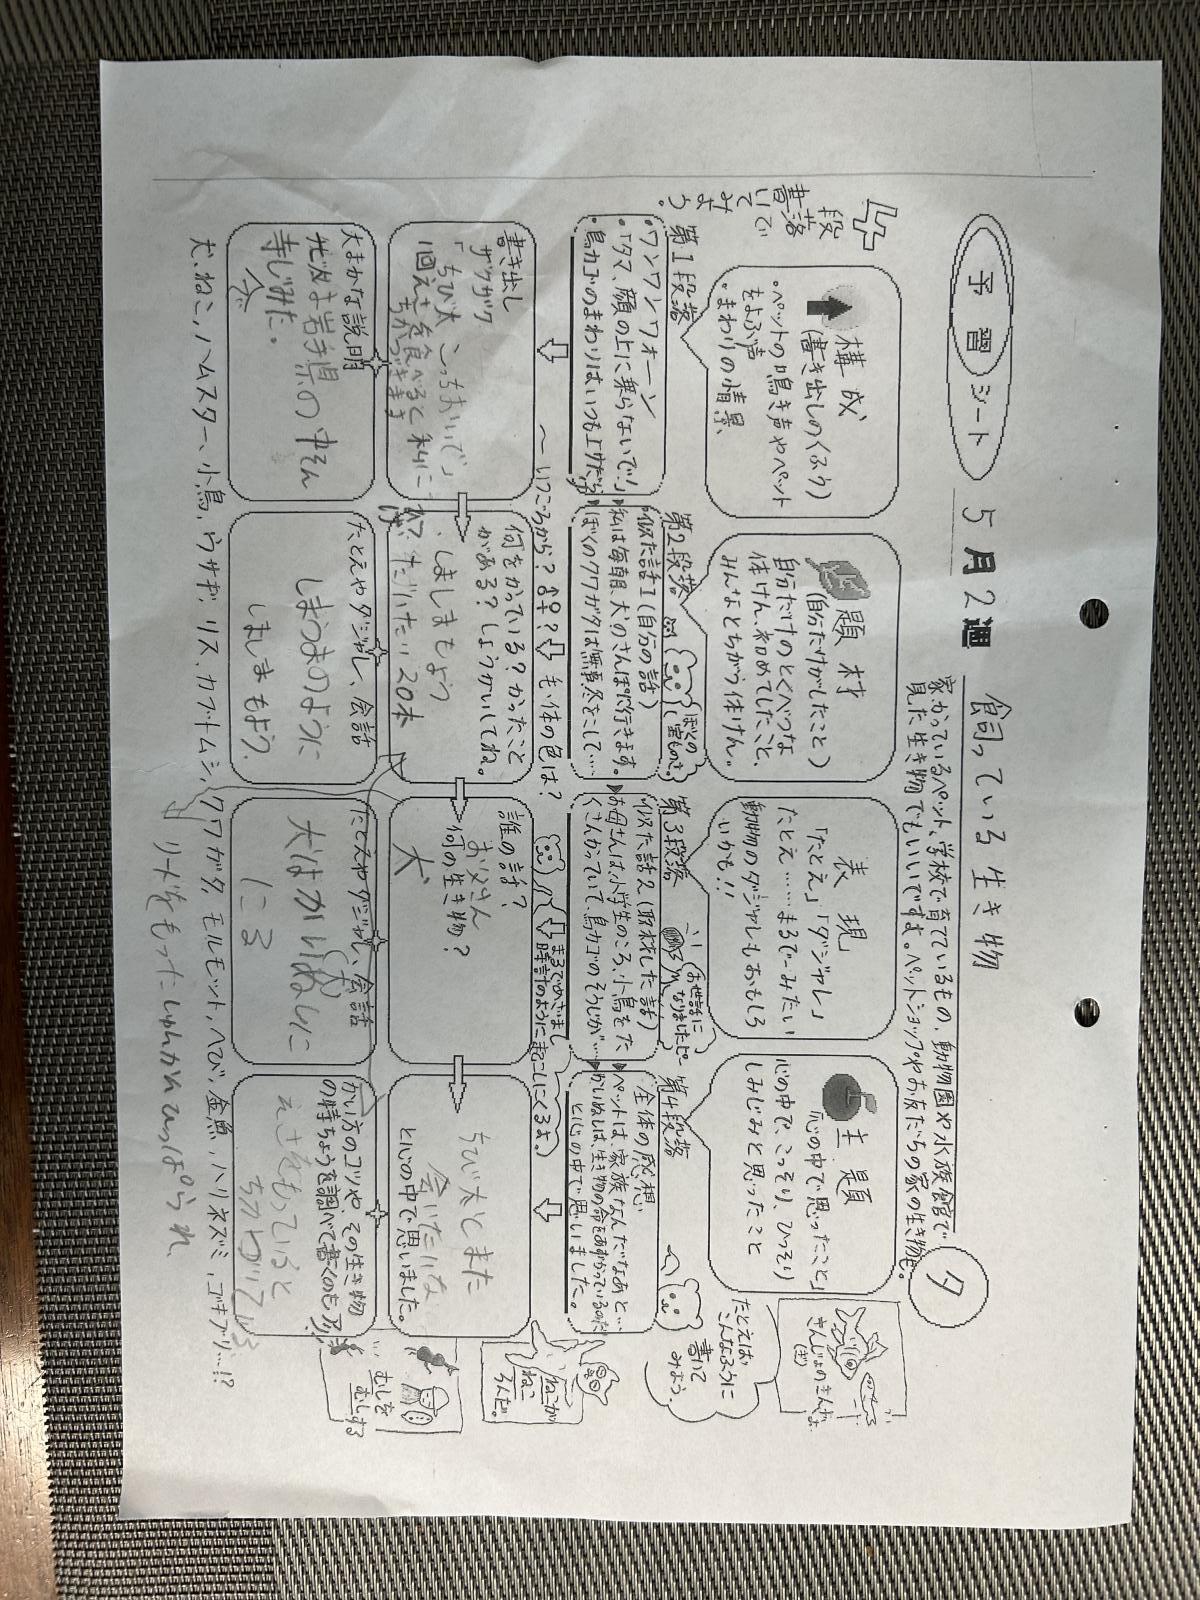 予習シート
5月2週
飼っている生き物
家かっているペット、学校で育てているもの、動物園や水族館で
見た生き物でもいいです。ペットショップやお友だちの家の生き物も。
タ
4
段落
書いて
みよう。
構成
(書き出しのくふう)
・ペットの鳴き声やペット
をよぶ声
・まわりの情景
題材
(自分だけがしたこと)
自分だけのとくべつな
体けん、初めてしたこと、
みんなとちがう体けん。
表現
「たとえ」「ダジャレ」
たとえ……まるで〜みたい
動物のダジャレもおもしろ
いかも!!
主題
「心の中で思ったこと」
心の中で、こっそり、ひっそり
しみじみと思ったこと
さんじょのさんぽ
たとえば
こんなふうに
書いて
みよう。
第1段落
・ワンワンワオーン
・「タマ、顔の上に乗らないで!」
・鳥カゴのまわりはいつも上げだら
第2段落
ぼくの
宝もの
似た話1(自分の話)
私は毎朝、犬のさんぽに行きます。
ぼくのクワガタは無事冬をこして……
第3段落
お世話に
なりましたピー
似た話2(取材した話)
お母さんは、小学生のころ、小鳥をた
くさんかっていて、鳥カゴのそうじが…
第4段落
全体の感想
ペットは、家族なんだなあと…
かいぬしは生き物の命をあずかっているのだ
と心の中で思いました。
〜いつごろから?♂♀?
毛・体の色は?
まるでめざまし
時計のように起こしにくるよ。
ねこが
ねこ
ろんだ。
書き出し
ザクザク
「ちび太 こっちおいで」
1回えさを食べると私に
ちかづきます
何をかっている?かったこと
がある?しょうかいしてね。
しましまもよう
ひげ だいたい20本
誰の話?
お父さん
何の生き物?
犬
ちび太とまた
会いたいな
と心の中で思いました。
むしを
むしする
大まかな説明
地しは岩手県の中そん
寺じみた。
たとえやダジャレ、会話
しまうまのように
しましまもよう
たとえやダジャレ、会話
犬はかいぬしに
にる
かい方のコツや、その生き物
の特ちょうを調べて書くのもアリ
えさをもっていると
ちかづいてくる
犬、ねこ、ハムスター、小鳥、ウサギ、リス、カブトムシ、クワガタ、モルモット、ヘび、金魚、ハリネズミ、ゴキブリ…!?
リードをもったしゅんかんひっぱられ